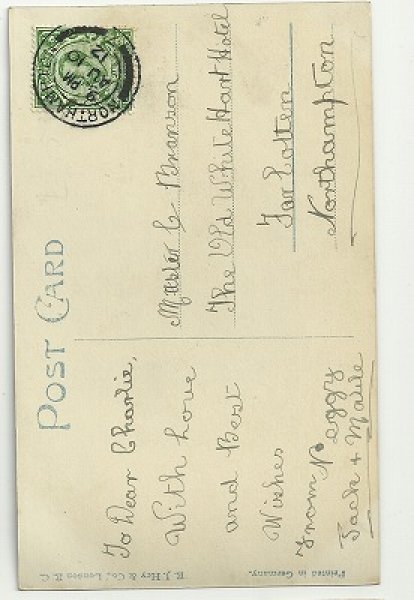 POST CARD
NORTHAMPTON
To Dear Charlie,
With love
and Best
Wishes
From Peggy
Jack + Maile
Master C Branson
The Old White Hart Hotel
Far Cotten
Northampton
R. J. Hey & Co., London E. C.
Printed in Germany.